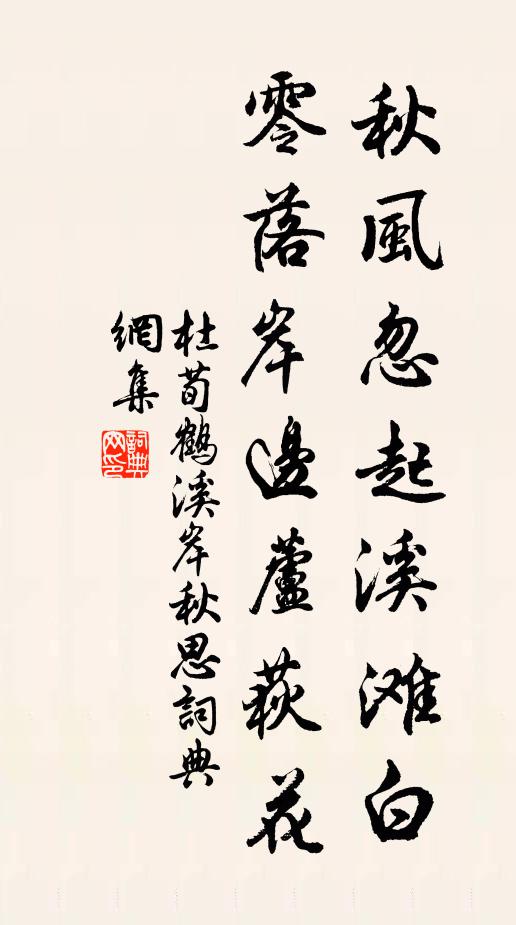 秋風忽起溪滩白
零落岸邊蘆荻花
杜荀鶴溪岸秋思詞典
網集
詞典
网印